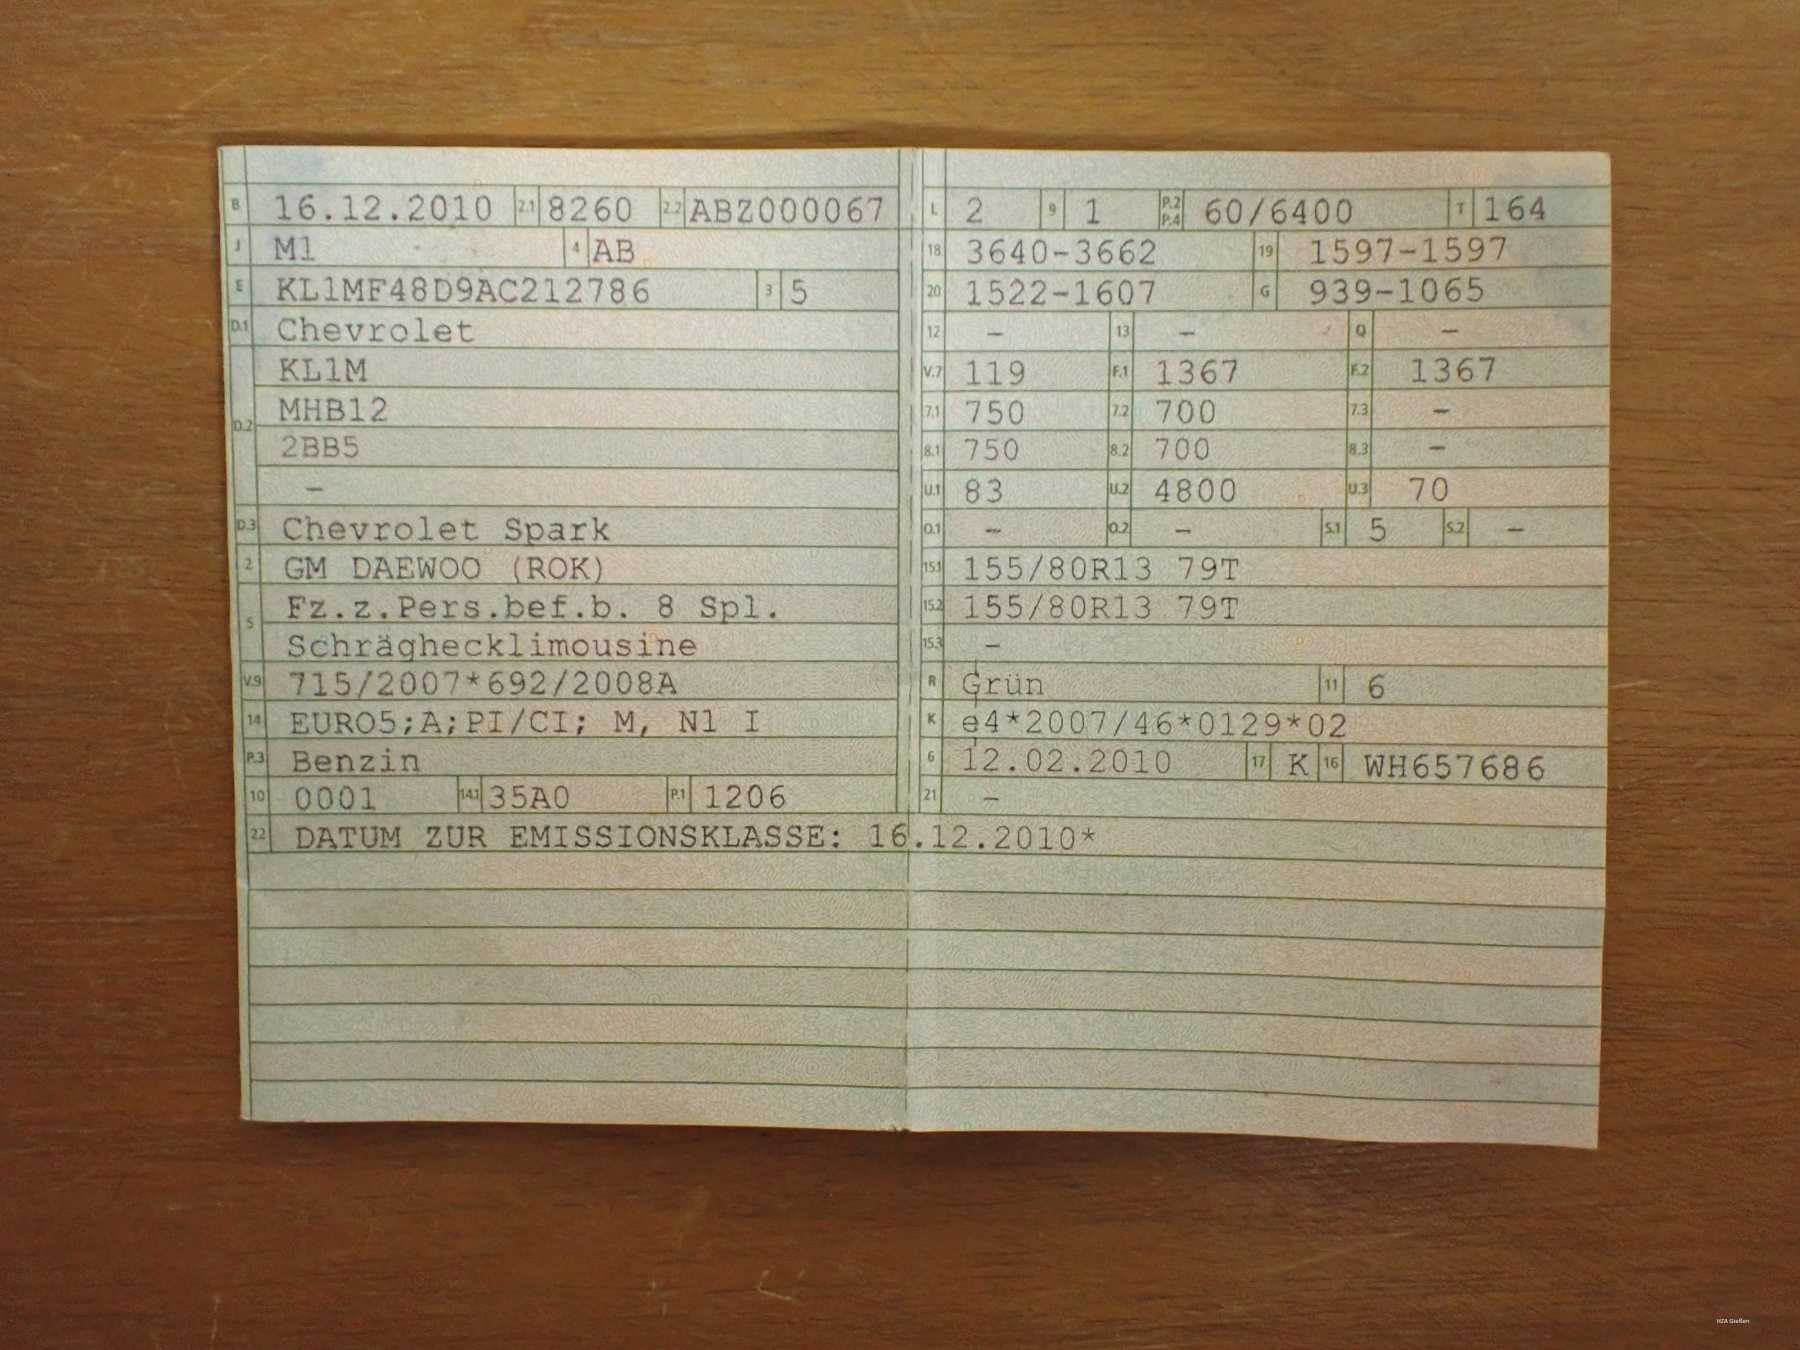 B 16.12.2010 2.1 8260 2.2 ABZ000067
J M1 4 AB
E KL1MF48D9AC212786 3 5
D.1 Chevrolet
KL1M
D.2 MHB12
2BB5
–
D.3 Chevrolet Spark
2 GM DAEWOO (ROK)
5 Fz.z.Pers.bef.b. 8 Spl.
Schräghecklimousine
V.9 715/2007*692/2008A
14 EURO5;A;PI/CI; M, N1 I
P.3 Benzin
10 0001 14.1 35A0 P.1 1206
L 2 9 1 P.2 P.4 60/6400 T 164
18 3640-3662 19 1597-1597
20 1522-1607 G 939-1065
12 – 13 – Q –
V.7 119 F.1 1367 F.2 1367
7.1 750 7.2 700 7.3 –
8.1 750 8.2 700 8.3 –
U.1 83 U.2 4800 U.3 70
O.1 – O.2 – S.1 5 S.2 –
15.1 155/80R13 79T
15.2 155/80R13 79T
15.3 –
R Grün 11 6
K e4*2007/46*0129*02
6 12.02.2010 17 K 16 WH657686
21 –
22 DATUM ZUR EMISSIONSKLASSE: 16.12.2010*
HZA Gießen